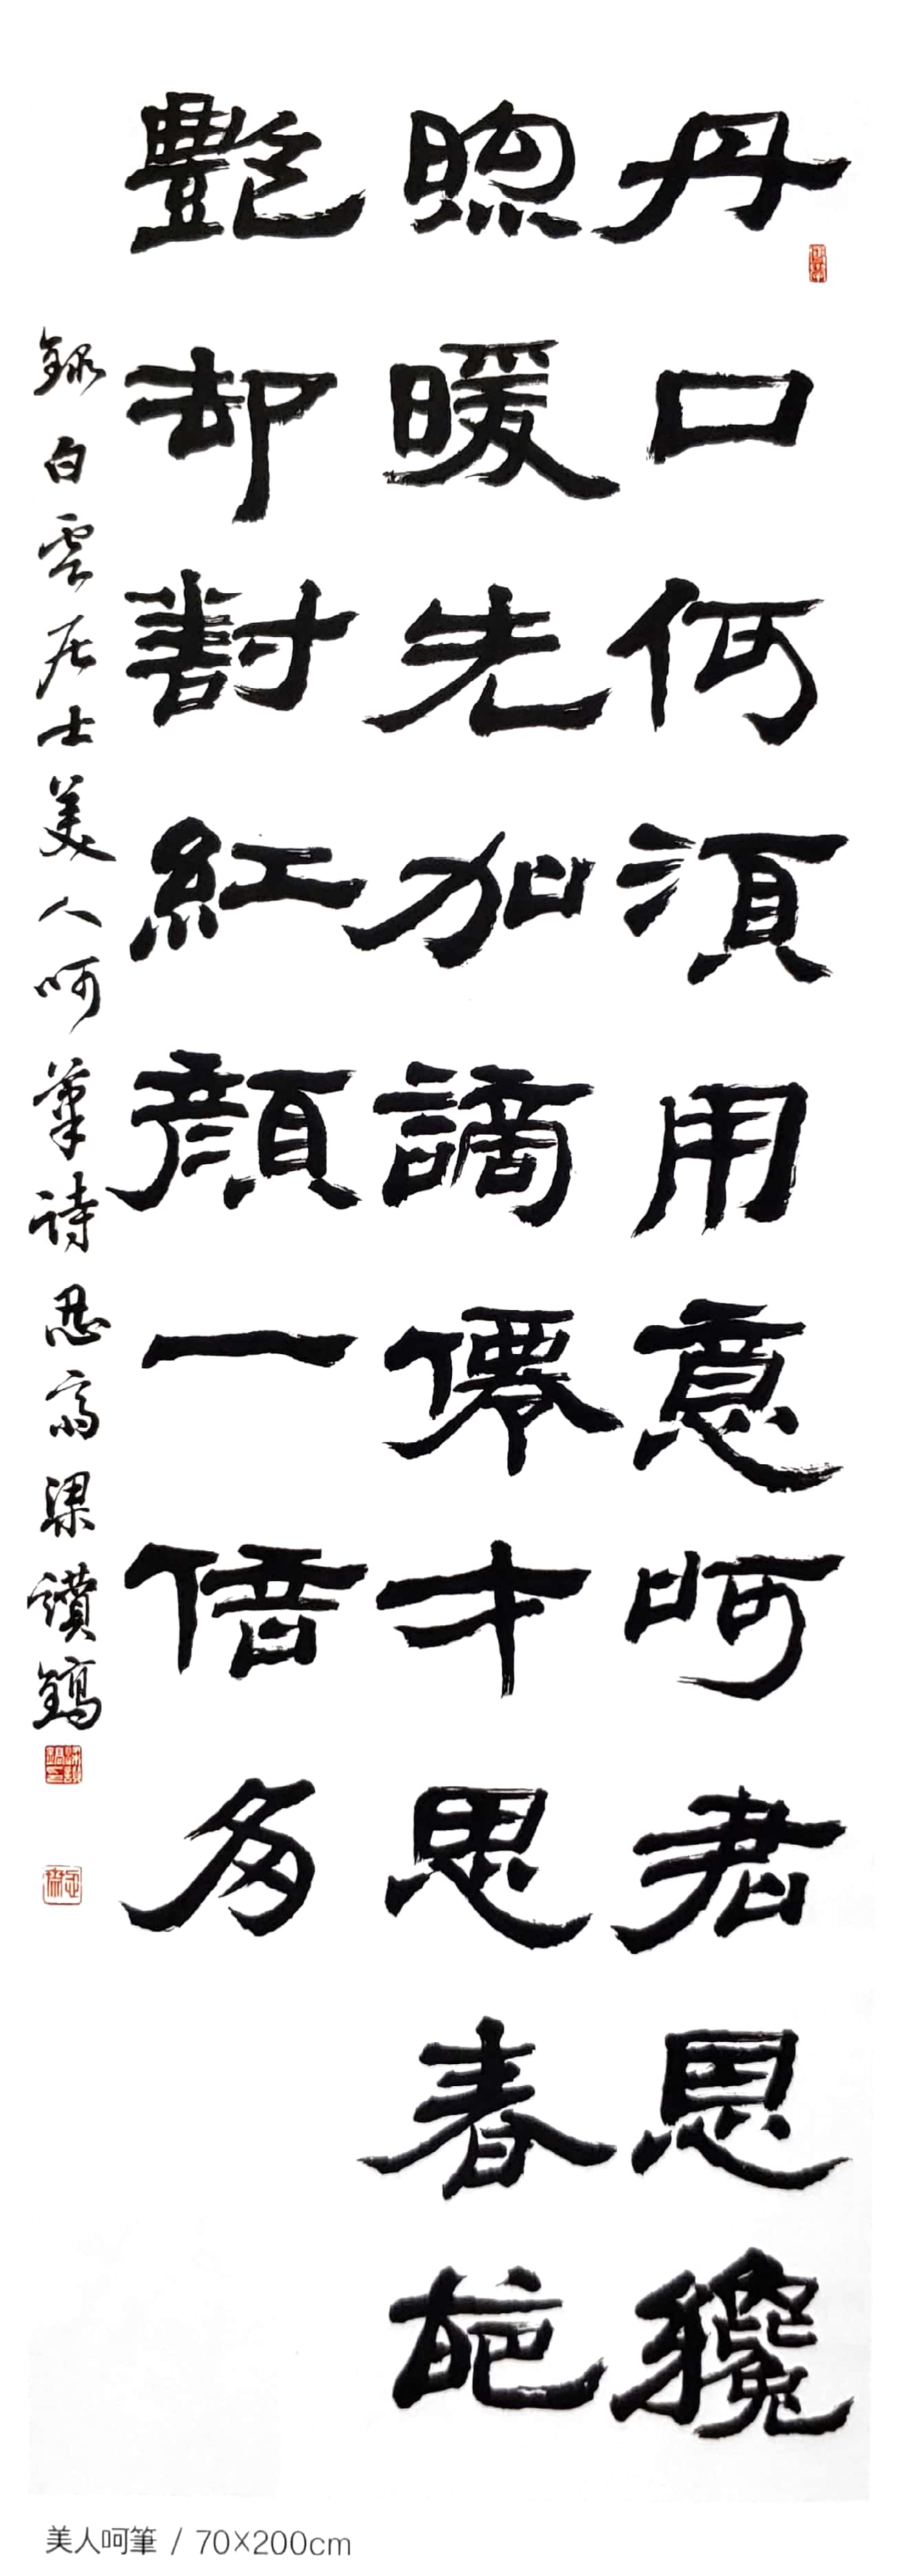 丹口何須用意呵君恩纔
煦暖先加謫僊才思春葩
艷却對紅顏一倍多
錄白雲居士美人呵筆詩忍齋梁讚鎬
美人呵筆 / 70×200cm